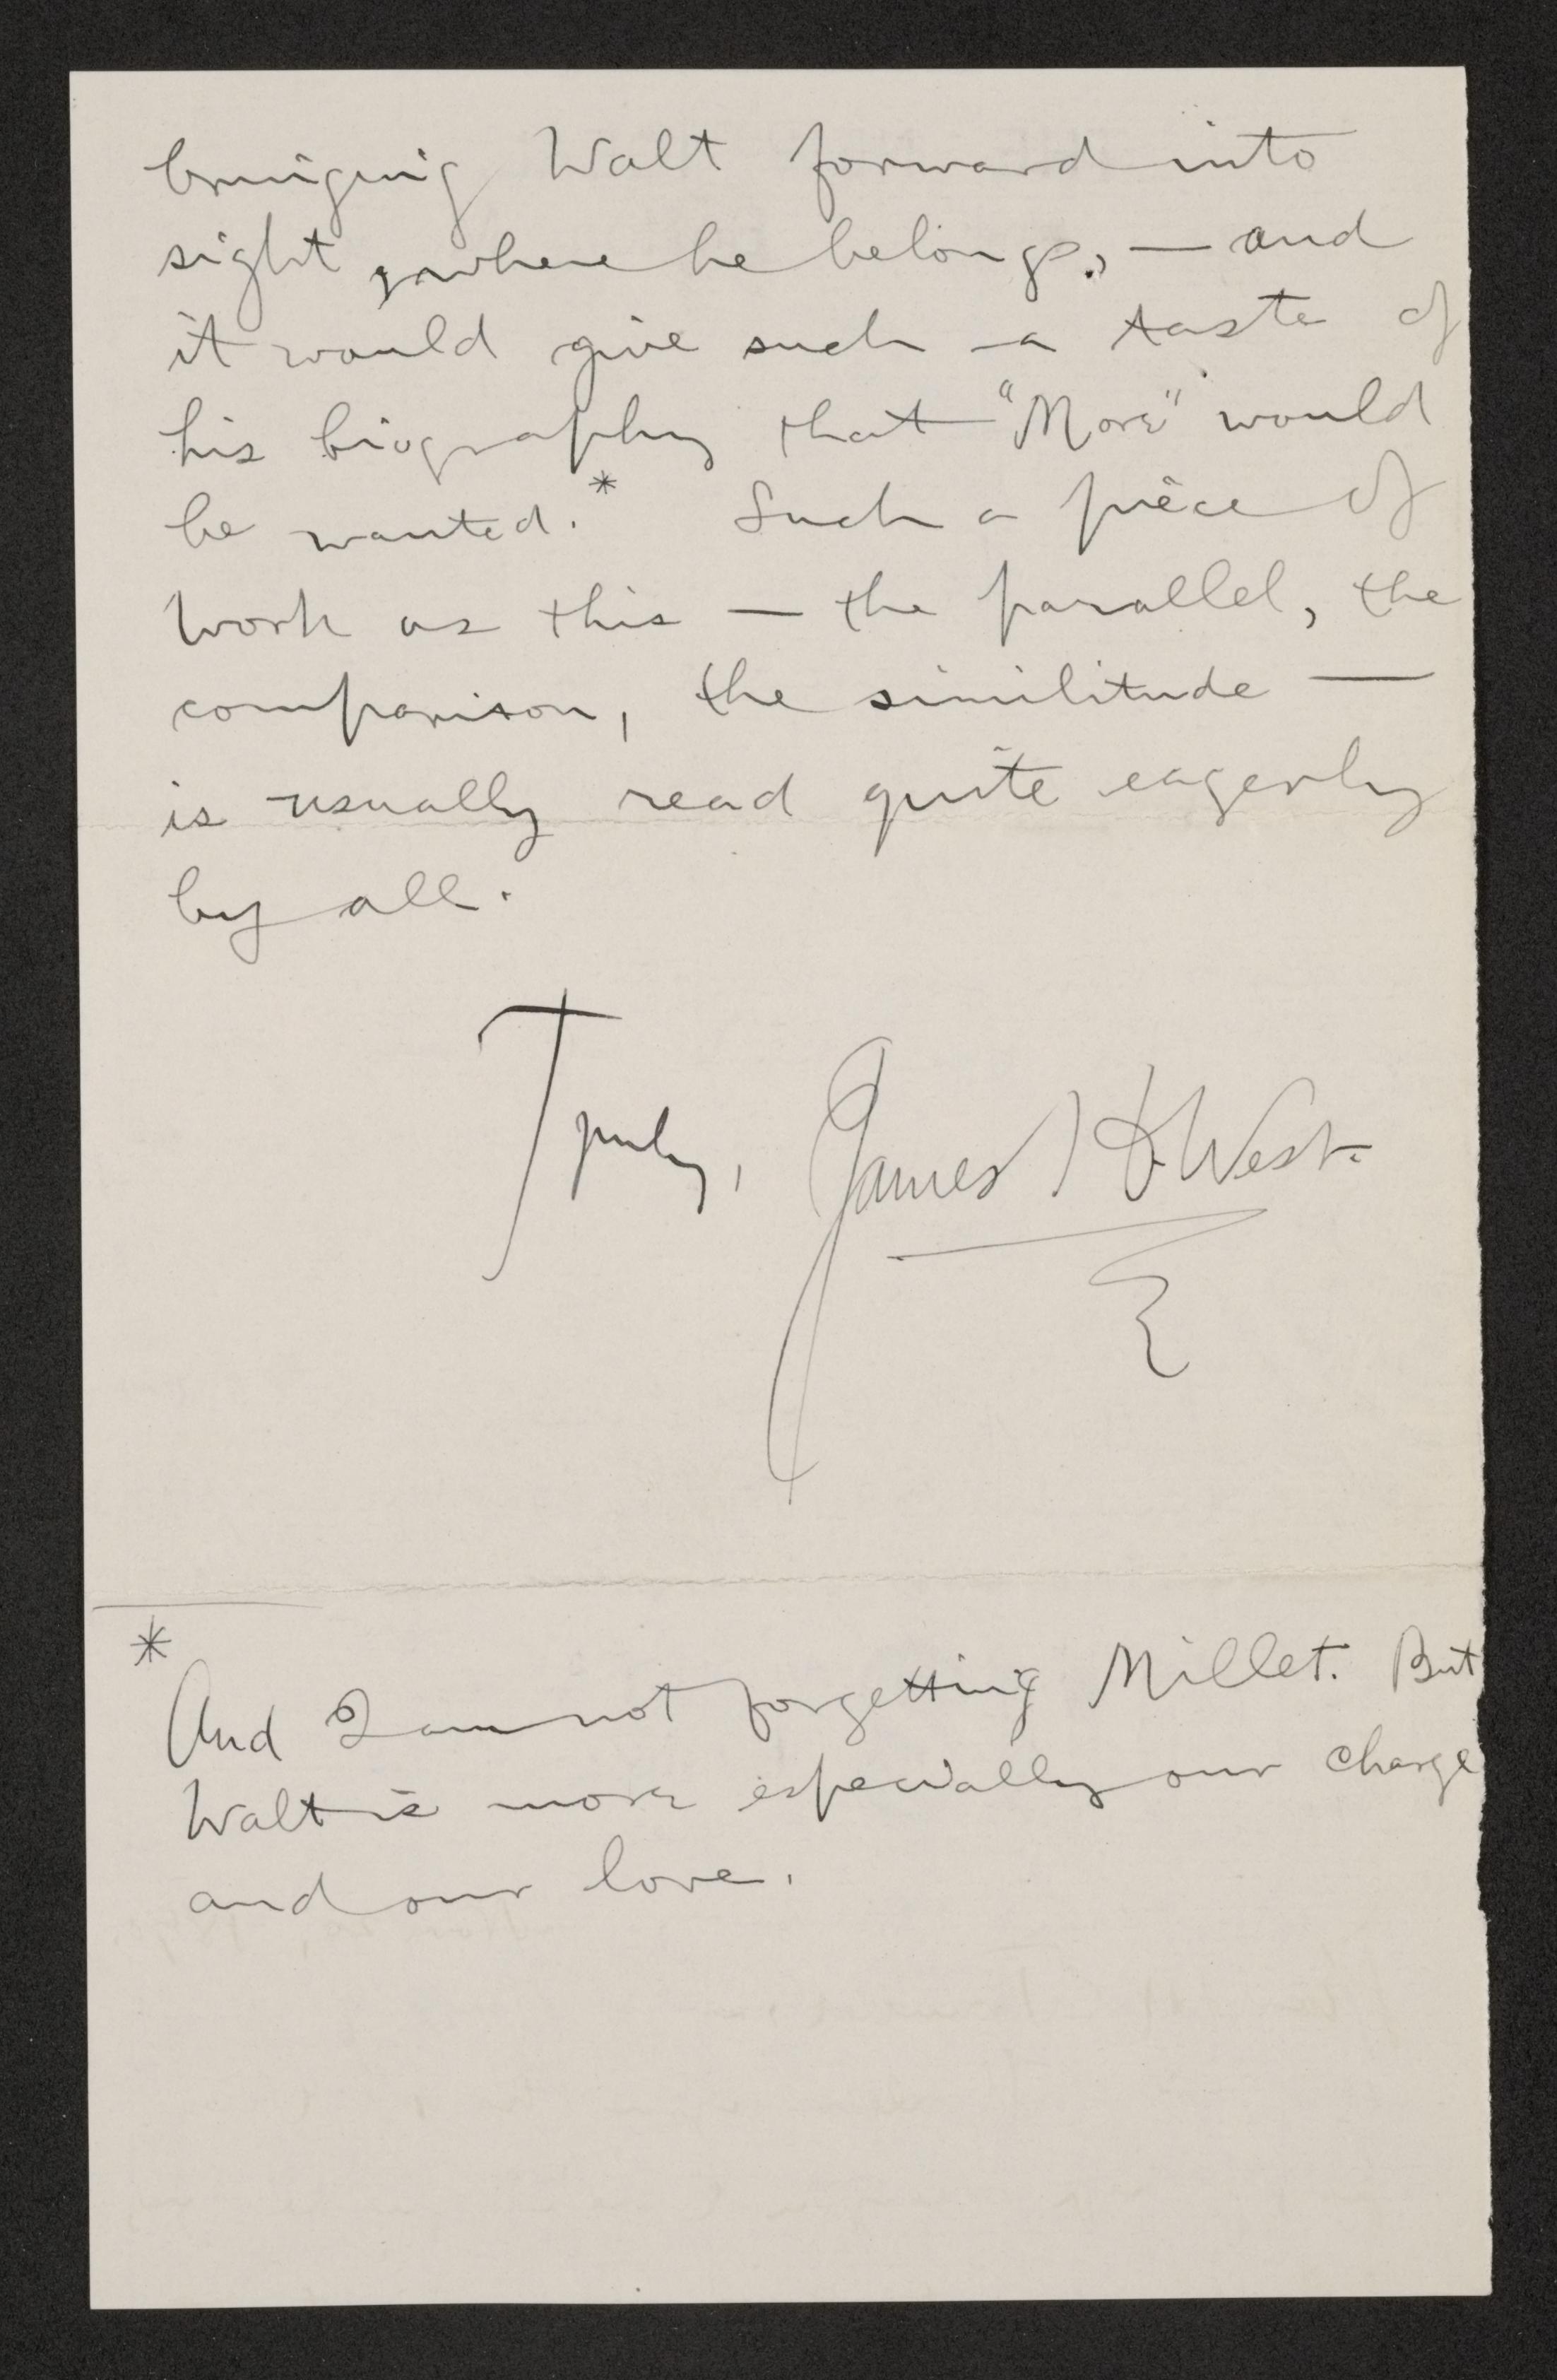 bringing Walt forward into
sight, where he belongs, — and
it would give such a taste of
his biography that "More" would
be wanted.* Such a piece of
work as this — the parallel, the
comparison, the similitude —
is usually read quite eagerly
by all.
Truly, James H. West.
*
And I am not forgetting Millet. But
Walt is more especially our charge
and our love.